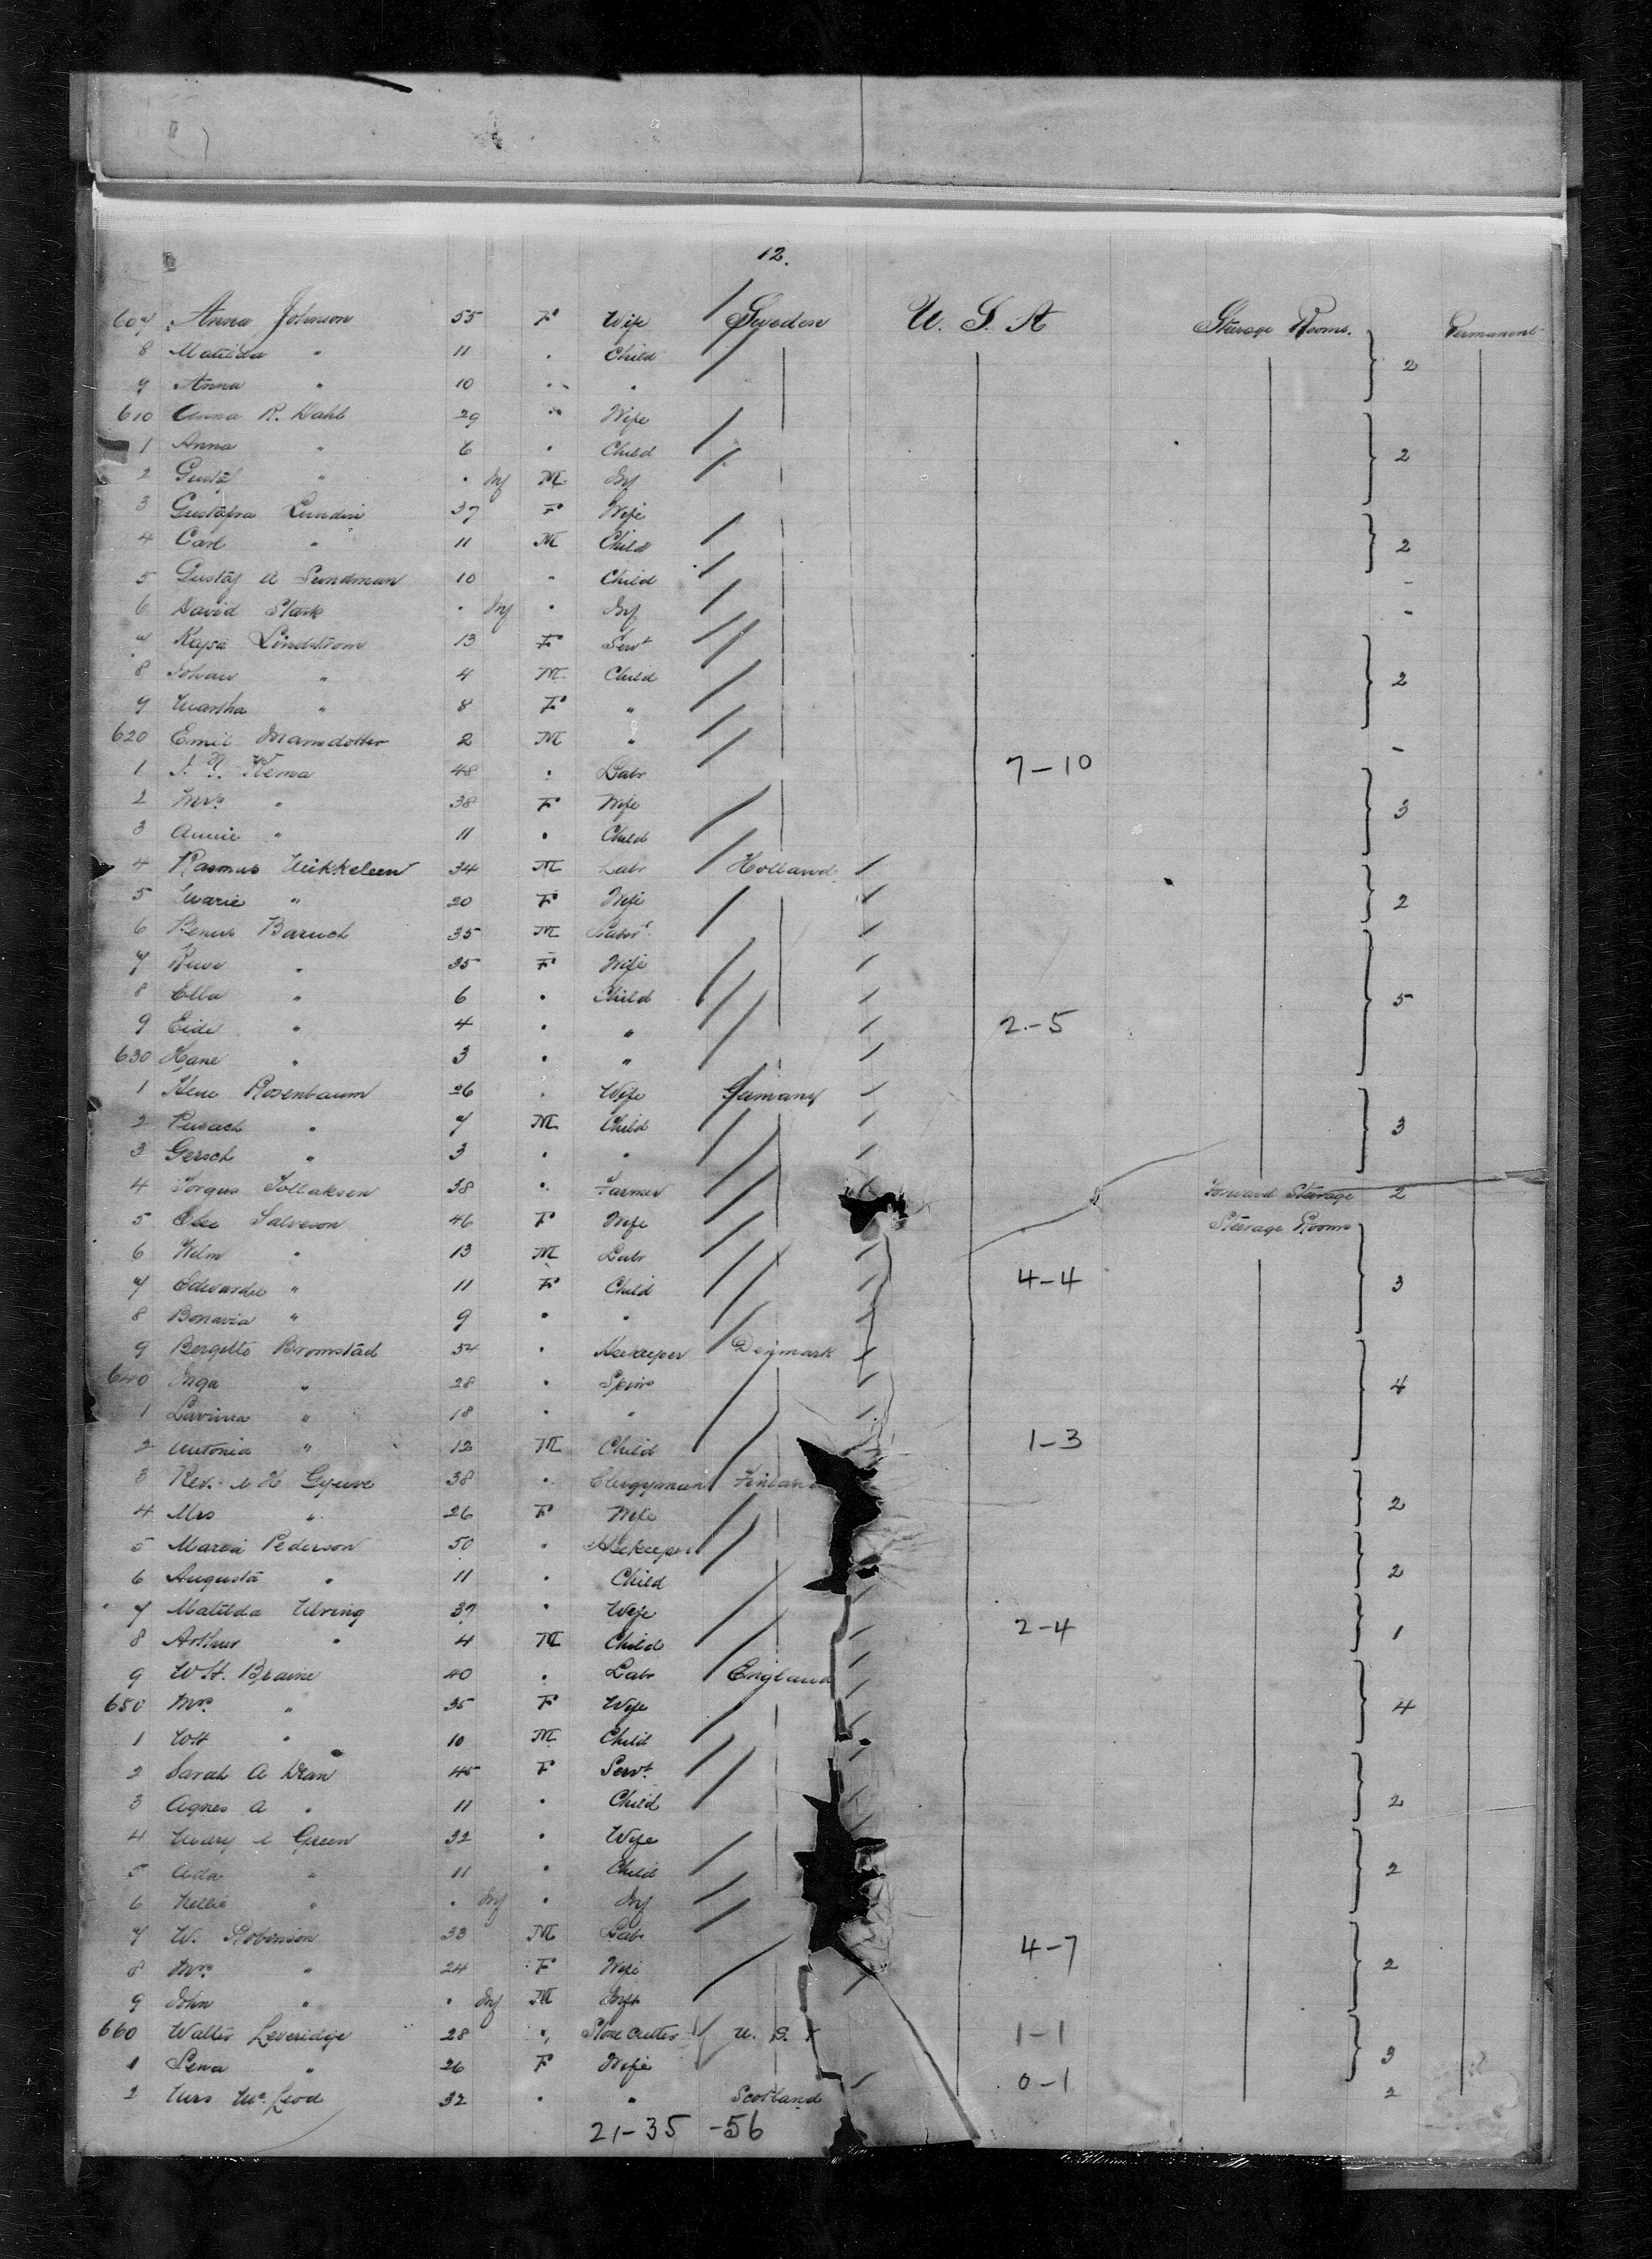 12.
607 Anna Johnson 55 F Wife Sweden U. S. A Steerage Rooms. Permanent
8 Matilda " 11 " Child 2
9 Anna " 10 " "
610 Anna R. Dahl 29 " Wife
1 Anna " 6 " Child 2
2 Gustaf " " Inf M Inf
3 Gustafva Lundin 37 F Wife
4 Carl " 11 M Child 2
5 Gustaf A Sundman 10 " Child -
6 David Stark " Inf " Inf -
7 Kajsa Lindstrom 13 F Servt
8 Johan " 4 M Child 2
9 Martha " 8 F "
620 Emil Mansdotter 2 M " -
1 48 " Labr 7-10
2 Mrs " 38 F Wife 3
3 Annie " 11 " Child
4 Rasmus Mikkelsen 34 M Labr Holland
5 Marie " 20 F Wife 2
6 Baruch 35 M Labr
7 " 35 F Wife
8 Ella " 6 " Child 5
9 Eide " 4 " " 2-5
630 Hane " 3 " "
1 Rosenbaum 26 " Wife Germany
2 " 7 M Child 3
3 Gersch " 3 " "
4 Torgus Tollaksen 38 " Farmer Forward Steerage 2
5 Salveson 46 F Wife Steerage Rooms
6 " 13 M Labr
7 " 11 F Child 4-4 3
8 " 9 " "
9 Bergitte Bromstad 54 " Hsekeeper Denmark
640 Inga " 28 " Spins 4
1 Lavinia " 18 " "
2 Antonia " 12 M Child 1-3
3 Rev. 38 " Clergyman Finlan
4 Mrs " 26 F Wife 2
5 Maren Pederson 50 " Hsekeeper
6 Augusta " 11 " Child 2
7 Matilda Ulving 37 " Wife 2-4
8 Arthur " 4 M Child 1
9 W H. Braine 40 " Labr England
650 Mrs " 35 F Wife 4
1 W H " 10 M Child
2 Sarah A Dean 45 F Servt
3 Agnes A " 11 " Child 2
4 Mary E Green 32 " Wife
5 Ada " 11 " Child 2
6 Nellie " " Inf " Inf
7 W. Robinson 33 M Labr 4-7
8 Mrs " 24 F Wife 2
9 John " " Inf M Inft
660 Walter Leveridge 28 " Stone Cutter U. S. 1-1
1 Lena " 26 F Wife 3
2 Mrs McLeod 32 " " Scotland 0-1 2
21-35 -56